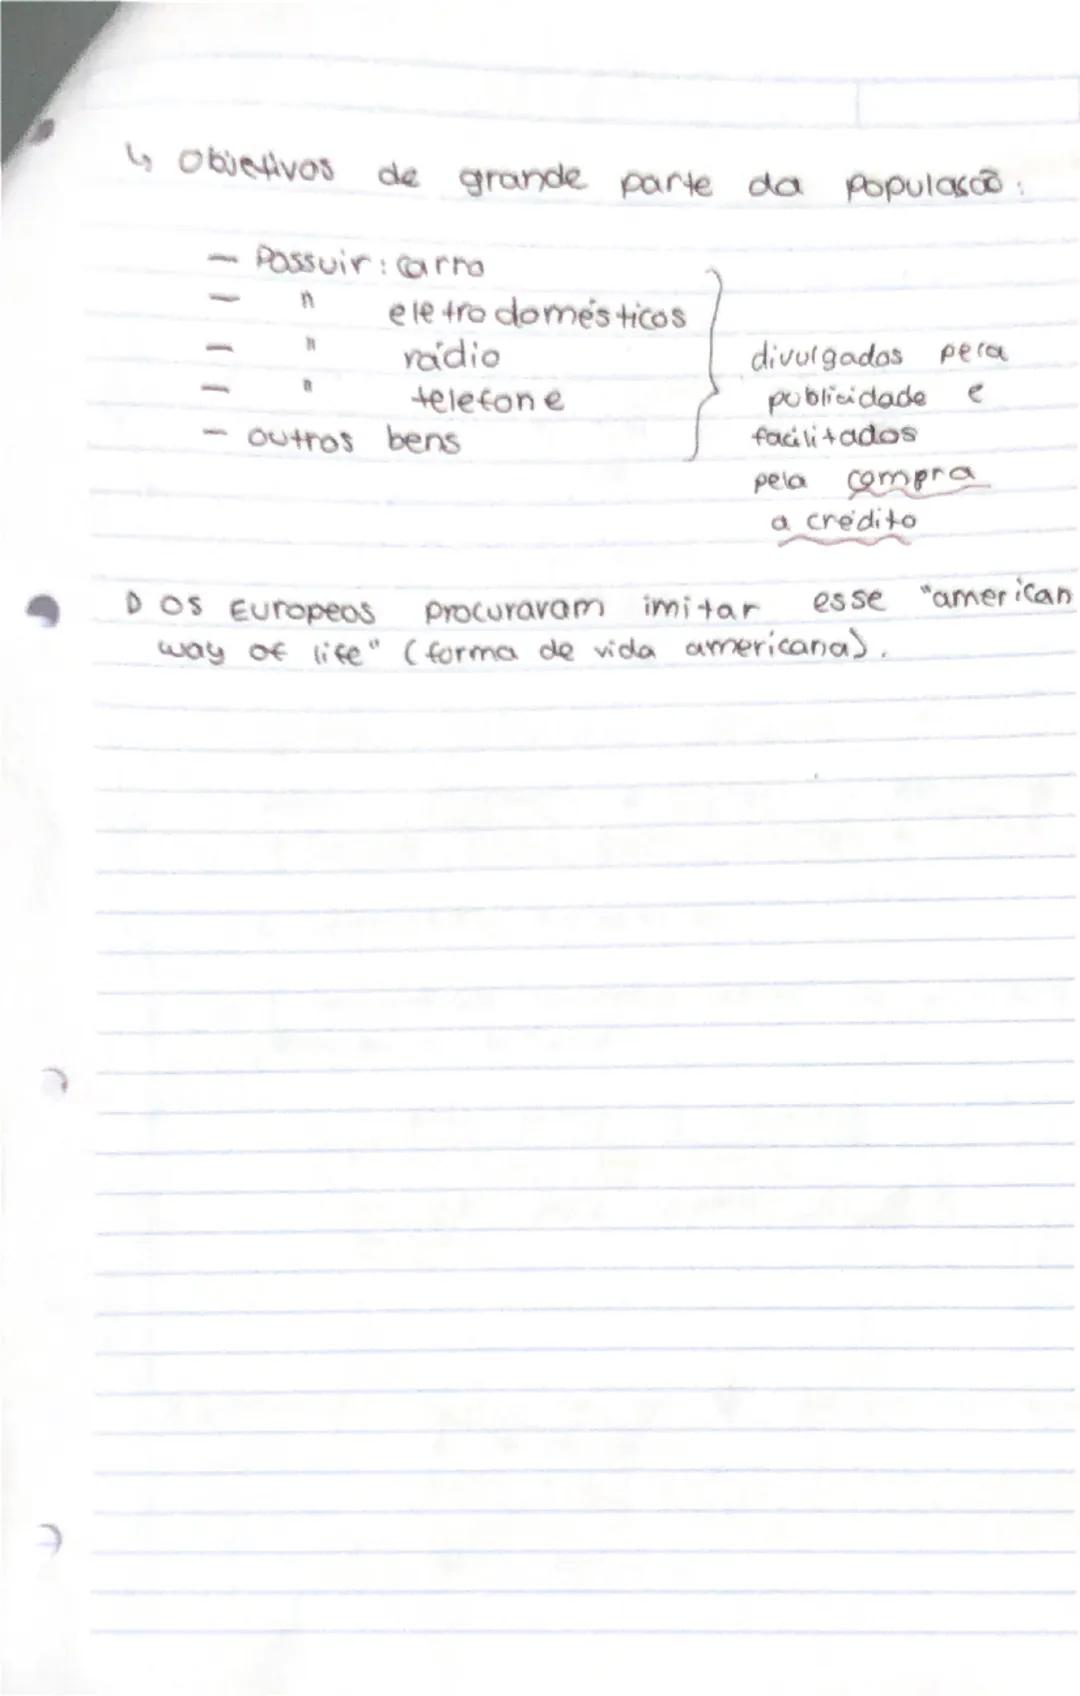 ↳ Objetivos de grande parte da população:
— Possuir: carro
— " eletrodomésticos
— " rádio
— " telefone
— outros bens
divulgados pela
publicidade e
facilitados
pela compra
a crédito
D Os Europeos procuravam imitar esse "american
way of life" (forma de vida americana).